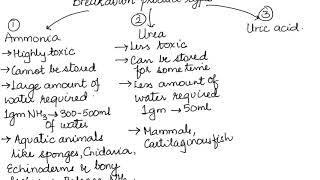 Breakdown product type
①
Ammonia
→Highly toxic
→Cannot be stored
→Large amount of
water required
1gm NH₃→300-500ml
of water
→Aquatic animals
like sponges, Cnidaria,
Echinoderms & bony
②
Urea
→Less toxic
→Can be stored
for some time
→Less amount of
water required
1gm → 50ml
→Mammals,
Cartilaginous fish
③
Uric acid